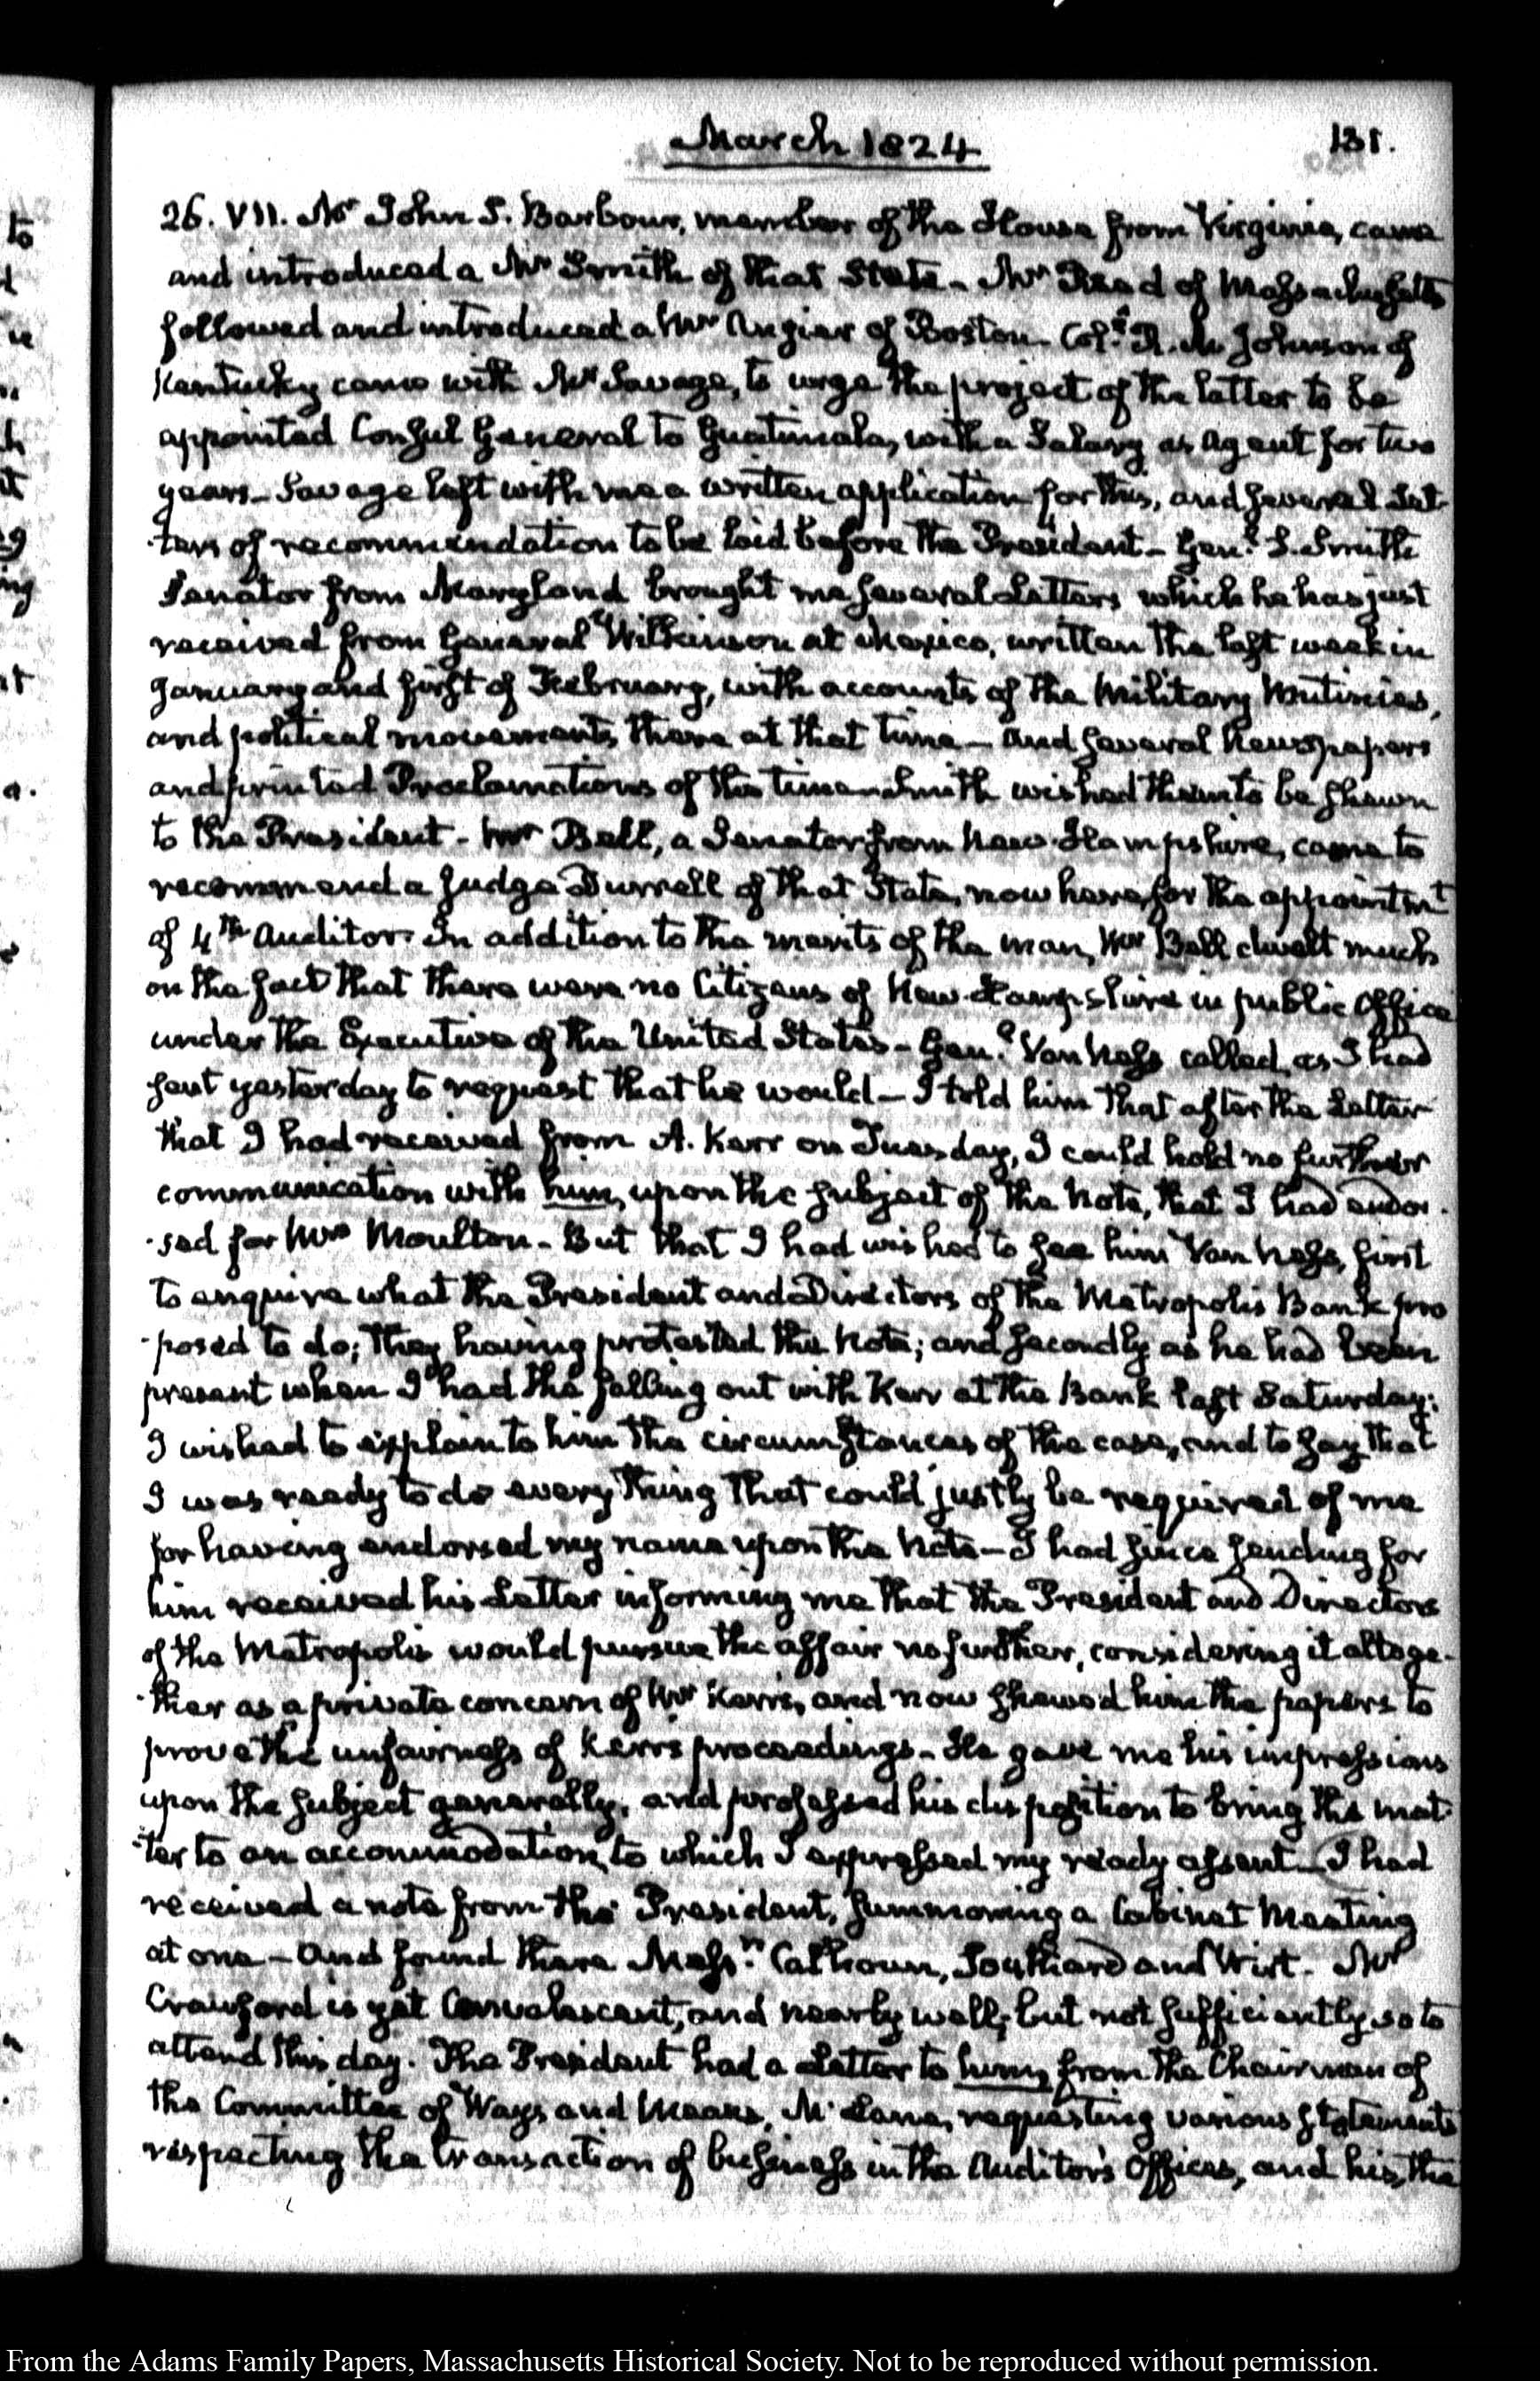 March 1824
131.
26. VII. Mr. John S. Barbour, member of the House from Virginia, came
and introduced a Mr. Smith of that State – Mr. Read of Massachusetts
followed and introduced a Mr. Angier of Boston – Coll. R. M. Johnson of
Kentucky came with Mr. Savage, to urge the project of the latter to be
appointed Consul General to Guatimala, with a Salary as Agent for two
years – Savage left with me a written application for this, and several Let-
-ters of recommendation to be laid before the President – Genl. S. Smith
Senator from Maryland brought me several Letters which he has just
received from General Wilkinson at Mexico, written the last week in
January and first of February, with accounts of the Military Mutinies,
and political movements there at that time – and several Newspapers
and printed Proclamations of the time – Smith wished them to be shewn
to the President – Mr. Bell, a Senator from New-Hampshire, came to
recommend a Judge Durrell of that State, now here, for the appointmt.
of 4th Auditor. In addition to the merits of the man, Mr Bell dwelt much
on the fact that there were no Citizens of New-Hampshire in public Office
under the Executive of the United States – Genl. Van Ness called, as I had
sent yesterday to request that he would – I told him that after the Letter
that I had received from A. Kerr on Tuesday, I could hold no further
communication with him, upon the subject of the Note, that I had endor-
-sed for Mrs Moulton – But that I had wished to see him Van Ness, first
to enquire what the President and Directors of the Metropolis Bank pro
-posed to do; they having protested the Note; and secondly as he had been
present when I had the falling out with Kerr at the Bank last Saturday;
I wished to explain to him the circumstances of the case, and to say that
I was ready to do every thing that could justly be required of me
for having endorsed my name upon the Note – I had since sending for
him received his Letter informing me that the President and Directors
of the Metropolis would pursue the affair no further, considering it altoge-
-ther as a private concern of Mr Kerr's, and now shewed him the papers to
prove the unfairness of Kerr's proceedings – He gave me his impressions
upon the subject generally, and professed his disposition to bring the mat-
-ter to an accommodation, to which I expressed my ready assent – I had
received a note from the President, summoning a Cabinet Meeting
at one – And found there Messrs. Calhoun, Southard and Wirt. Mr
Crawford is yet Convalescent, and nearly well; but not sufficiently so to
attend this day. The President had a Letter to him, from the Chairman of
the Committee of Ways and Means, McLane, requesting various statements
respecting the transaction of business in the Auditor's Offices, and his, the
From the Adams Family Papers, Massachusetts Historical Society. Not to be reproduced without permission.